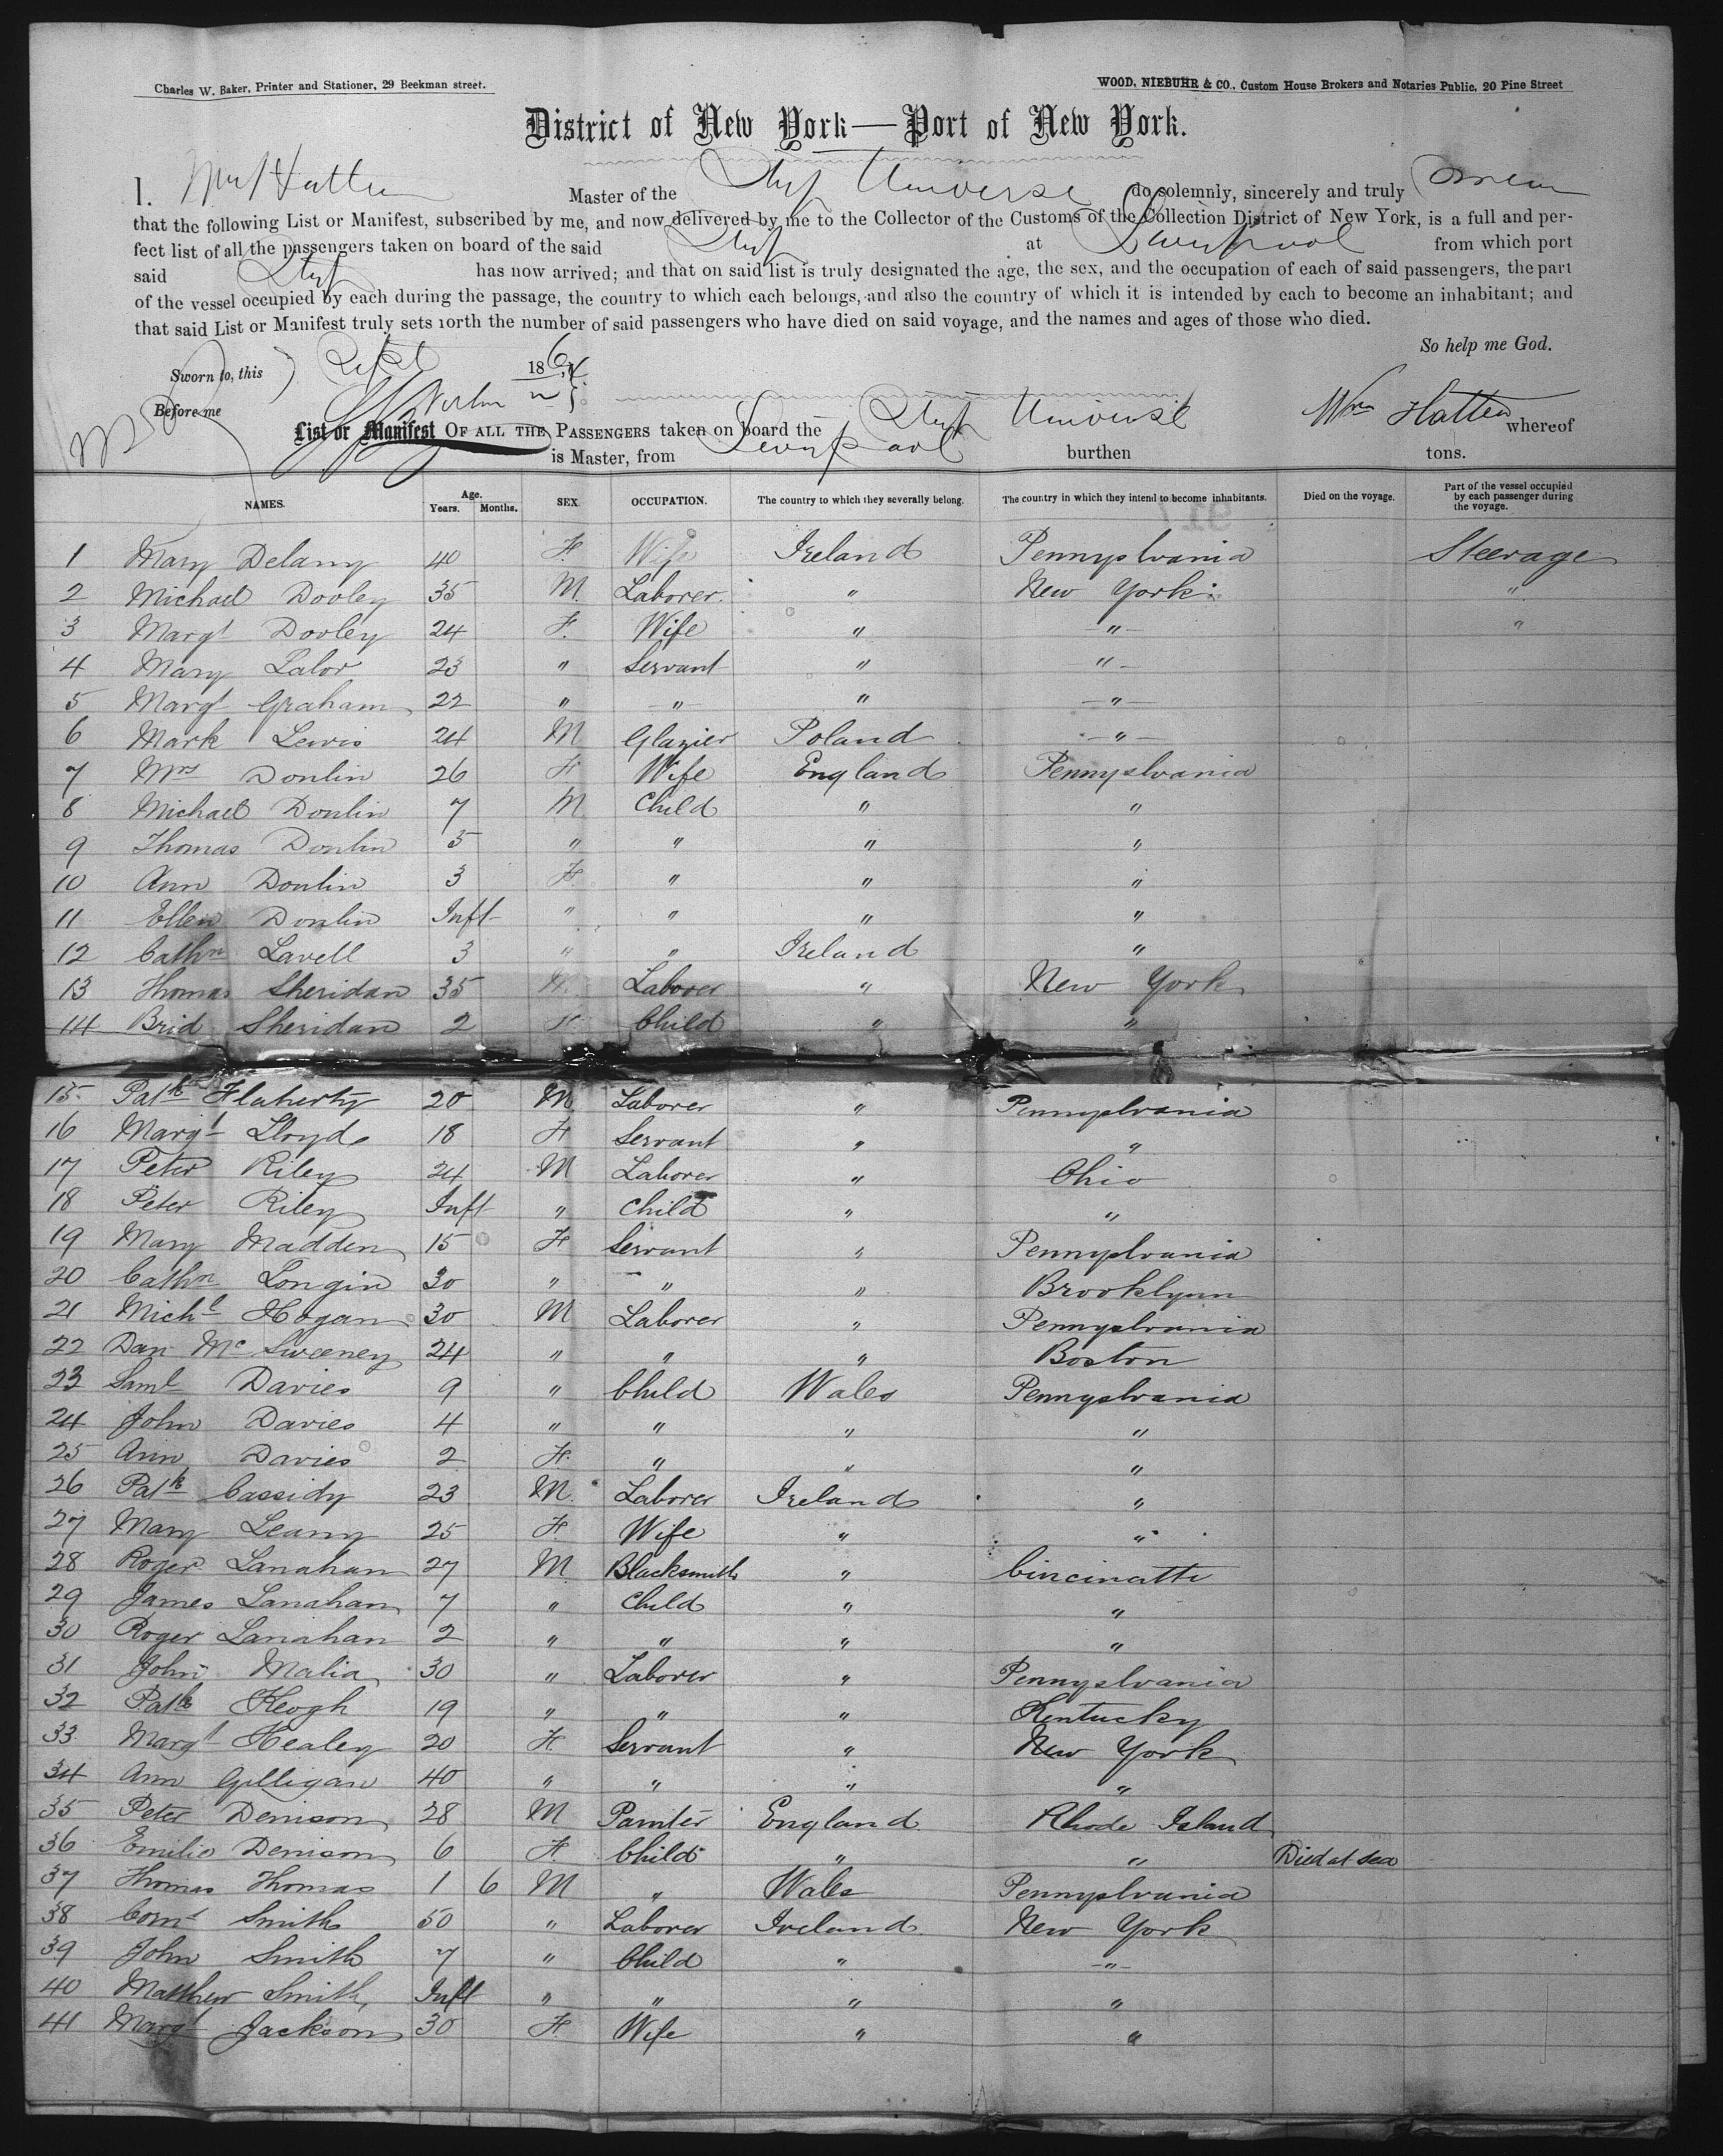 Charles W. Baker, Printer and Stationer, 29 Beekman street.
WOOD, NIEBUHR & CO., Custom House Brokers and Notaries Public, 20 Pine Street
District of New York—Port of New York.
I, Wm Hatten Master of the Ship Universe do solemnly, sincerely and truly swear
that the following List or Manifest, subscribed by me, and now delivered by me to the Collector of the Customs of the Collection District of New York, is a full and per-
fect list of all the passengers taken on board of the said Ship at Liverpool from which port
said Ship has now arrived; and that on said list is truly designated the age, the sex, and the occupation of each of said passengers, the part
of the vessel occupied by each during the passage, the country to which each belongs, and also the country of which it is intended by each to become an inhabitant; and
that said List or Manifest truly sets forth the number of said passengers who have died on said voyage, and the names and ages of those who died.
So help me God.
Sworn to, this Sept 186
Before me
Wm Hatten
List or Manifest OF ALL THE PASSENGERS taken on board the Ship Universe whereof
is Master, from Liverpool burthen tons.
NAMES. Age. Years. Months. SEX. OCCUPATION. The country to which they severally belong. The country in which they intend to become inhabitants. Died on the voyage. Part of the vessel occupied by each passenger during the voyage.
1 Mary Delany 40 F. Wife Ireland Pennyslvania Steerage
2 Michael Dooley 35 M. Laborer " New York "
3 Margt Dooley 24 F. Wife " " "
4 Mary Lalor 23 " Servant " "
5 Margt Graham 22 " " " "
6 Mark Lewis 24 M Glazier Poland "
7 Mrs Donlin 26 F Wife England Pennyslvania
8 Michael Donlin 7 M Child " "
9 Thomas Donlin 5 " " " "
10 Ann Donlin 3 F. " " "
11 Ellen Donlin Inft " " " "
12 Cathn Lavell 3 " " Ireland "
13 Thomas Sheridan 35 M. Laborer " New York
14 Brid Sheridan 2 F. Child " "
15 Patk Flaherty 20 M Laborer " Pennyslvania
16 Margt Lloyd 18 F Servant " "
17 Peter Riley 24 M Laborer " Ohio
18 Peter Riley Inft " Child " "
19 Mary Madden 15 F Servant " Pennyslvania
20 Cathn Longin 30 " " " Brooklynn
21 Michl Hogan 30 M Laborer " Pennyslvania
22 Dan Mc Sweeney 24 " " " Boston
23 Saml Davies 9 " Child Wales Pennyslvania
24 John Davies 4 " " " "
25 Ann Davies 2 F. " " "
26 Patk Cassidy 23 M. Laborer Ireland "
27 Mary Leamy 25 F. Wife " "
28 Roger Lanahan 27 M Blacksmith " Cincinatti
29 James Lanahan 7 " Child " "
30 Roger Lanahan 2 " " " "
31 John Malia 30 " Laborer " Pennyslvania
32 Patk Keogh 19 " " " Kentucky
33 Margt Healey 20 F. Servant " New York
34 Ann Gilligan 40 " " " "
35 Peter Denison 28 M Painter England Rhode Island
36 Emilie Denison 6 F. Child " " Died at sea
37 Thomas Thomas 1 6 M " Wales Pennyslvania
38 Corns Smith 50 " Laborer Ireland New York
39 John Smith 7 " Child " "
40 Matthew Smith Inft " " " "
41 Margt Jackson 30 F Wife " "